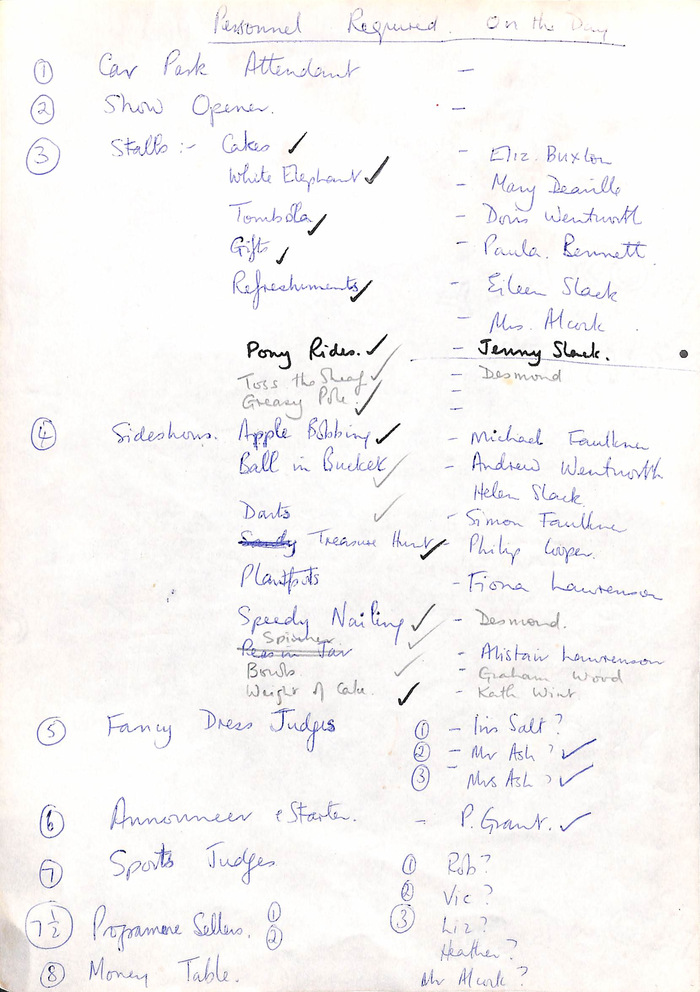 Personnel Required. On the Day
① Car Park Attendant –
② Show Opener. –
③ Stalls :- Cakes ✓ – Eliz. Buxton
White Elephant ✓ – Mary Deaville
Tombola ✓ – Doris Wentworth
Gifts ✓ – Paula. Bennett.
Refreshments ✓ – Eileen Slack
Mrs. Alcock
Pony Rides. ✓ – Jenny Slack.
Toss the Sheaf ✓ – Desmond
Greasy Pole. ✓ –
④ Sideshows. Apple Bobbing ✓ – Michael Faulkner
Ball in Bucket ✓ – Andrew Wentworth
Helen Slack
Darts ✓ – Simon Faulkner
Treasure Hunt ✓ – Philip Cooper.
Plantpots – Fiona Lawrenson
Speedy Nailing ✓ – Desmond.
Spinner
Peas in Jar ✓ – Alistair Lawrenson
Bowls. ✓ – Graham Wood
Weight of Cake. ✓ – Kath Wint
⑤ Fancy Dress Judges ① – Iris Salt?
② – Mr Ash ? ✓
③ – Mrs Ash ? ✓
⑥ Announcer & Starter. – P. Grant. ✓
7 Sports Judges ① Rob?
② Vic?
③ Liz?
7½ Programme Sellers. ① ②
Heather?
⑧ Money Table. Mr Alcock?